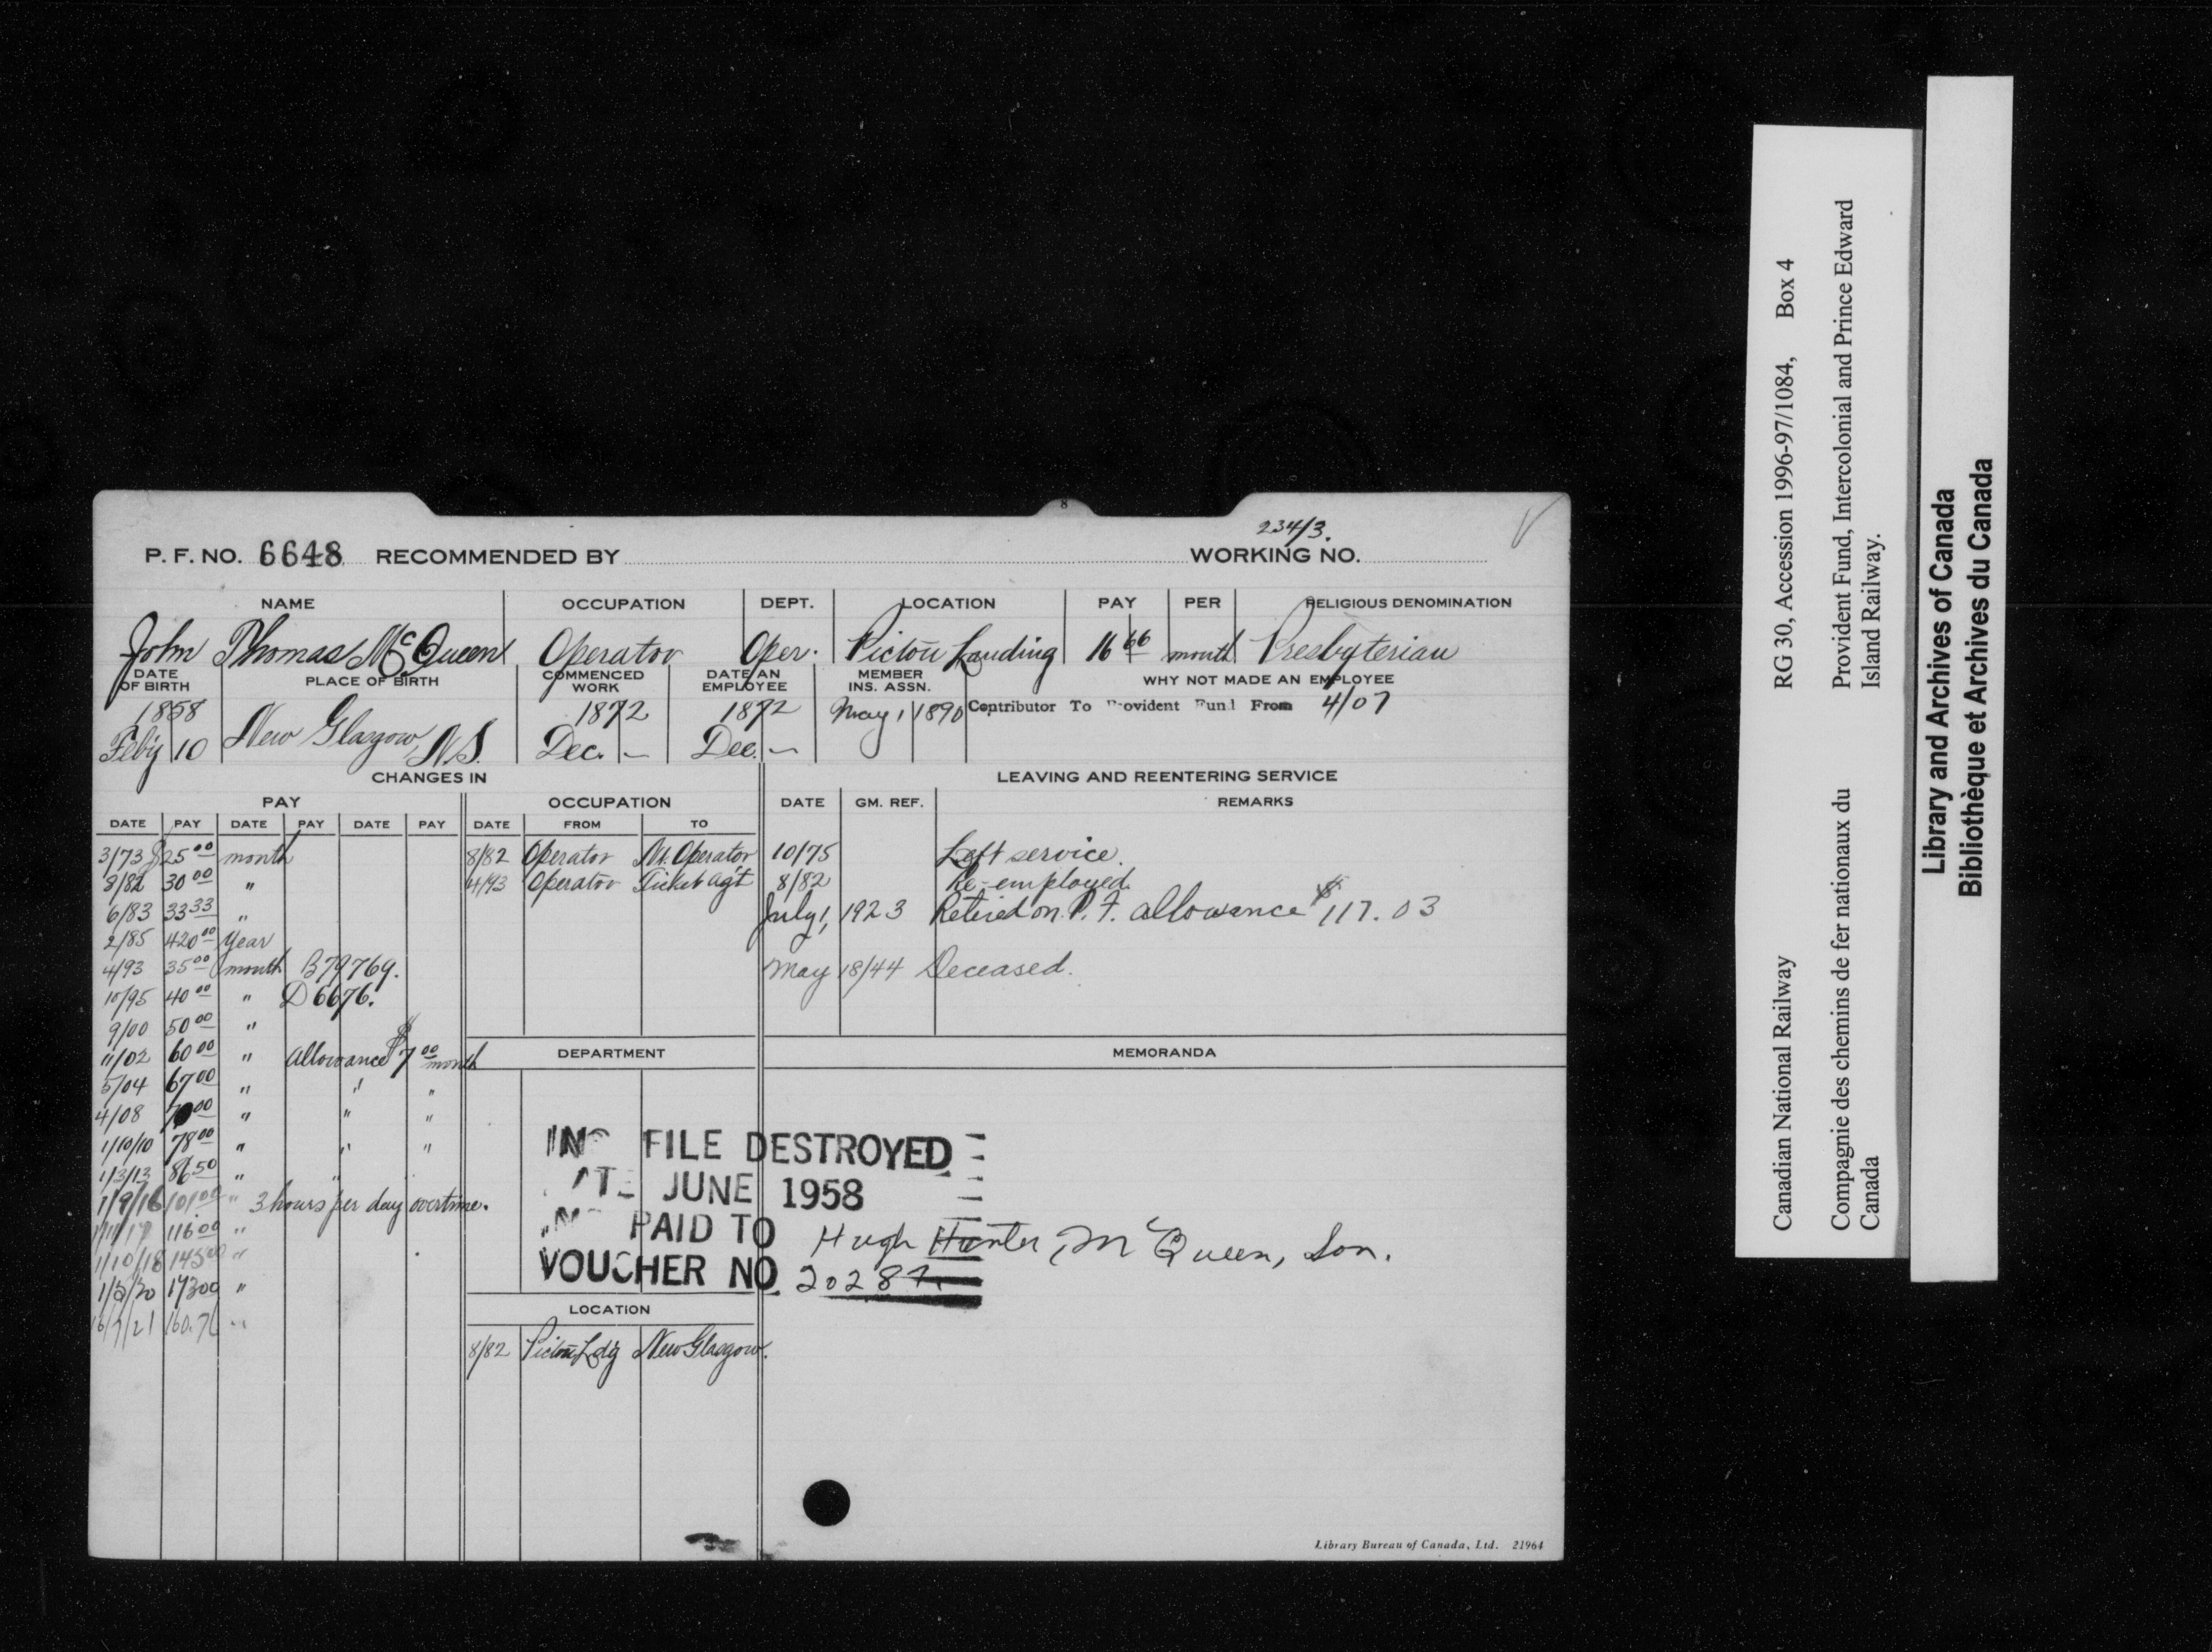 8
234/3.
P. F. NO. 6648 RECOMMENDED BY WORKING NO.
NAME OCCUPATION DEPT. LOCATION PAY PER RELIGIOUS DENOMINATION
John Thomas McQueen Operator Oper. Pictou Landing 16 66 month Presbyterian
DATE OF BIRTH PLACE OF BIRTH COMMENCED WORK DATE AN EMPLOYEE MEMBER INS. ASSN. WHY NOT MADE AN EMPLOYEE
1858 New Glasgow, N.S. 1872 1872 May 1 1890 Contributor To Provident Fund From 4/07
Feb'y 10 Dec. — Dec. —
CHANGES IN LEAVING AND REENTERING SERVICE
PAY OCCUPATION DATE GM. REF. REMARKS
DATE PAY DATE PAY DATE PAY DATE FROM TO
3/73 $25 00 month 8/82 Operator Nt. Operator 10/75 Left service.
8/82 30 00 " 4/93 Operator Ticket Ag't 8/82 Re-employed.
6/83 33 33 " July 1, 1923 Retired on P. F. allowance $117.03
2/85 420 00 Year
4/93 35 00 month B79769. May 18/44 Deceased.
10/95 40 00 " D6676.
9/00 50 00 "
11/02 60 00 " allowance $7 00 month
DEPARTMENT MEMORANDA
5/04 67 00 " " "
4/08 00 " " "
1/10/10 78 00 " " "
1/3/13 86 50 " "
1/9/16 101 00 " 3 hours per day overtime.
1/11/17 116 00 "
1/10/18 145 00 "
1/5/20 173 00 "
16/7/21 160.76 "
FILE DESTROYED
JUNE 1958
PAID TO Hugh Hunter McQueen, Son.
VOUCHER NO 20287
LOCATION
8/82 Pictou Ldg New Glasgow.
Library Bureau of Canada, Ltd. 21964
Canadian National Railway RG 30, Accession 1996-97/1084, Box 4
Compagnie des chemins de fer nationaux du Canada
Provident Fund, Intercolonial and Prince Edward Island Railway.
Library and Archives of Canada
Bibliothèque et Archives du Canada